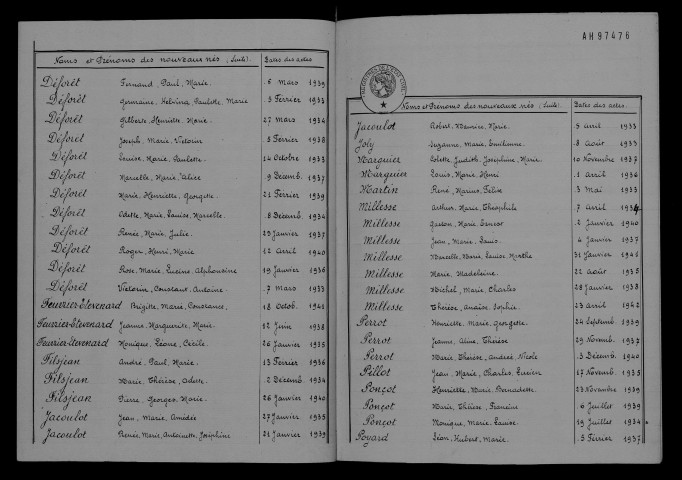 Noms et Prénoms des nouveaux nés (Suite). Dates des actes
Déforêt Fernand, Paul, Marie. 6 mars 1939
Déforêt Germaine, Paulette, Marie 3 Février 1933
Déforêt Gilberte, Henriette, Marie. 27 mars 1934
Déforêt Joseph, Marie, Victorin 8 Février 1938
Déforêt Louise, Marie, Paulette. 14 Octobre 1933
Déforêt Marcelle, Marie, Alice 9 Décemb. 1937
Déforêt Marie, Henriette, Georgette. 21 Février 1939
Déforêt Odette, Marie, Louise, Marcelle. 8 Décemb. 1934
Déforêt Renée, Marie, Julie. 23 Janvier 1937
Déforêt Roger, Henri, Marie 12 Avril 1940
Déforêt Rose, Marie, Alphonsine 19 Janvier 1936
Déforêt Victorin, Constant, Antoine. 7 mars 1933
Feuvrier-Etevenard Brigitte, Marie, Constance, 18 Octob. 1941
Feuvrier-Etevenard Jeanne, Marguerite, Marie. 12 Juin 1938
Feuvrier-Etevenard Monique, Léone, Cécile. 26 Janvier 1935
Filsjean André, Paul, Marie. 13 Février 1936
Filsjean Marie, Thérèse, Odette. 2 Décemb. 1934
Filsjean Pierre, Georges, Marie. 26 Janvier 1940
Jacoulot Jean, Marie, Amédée 27 Janvier 1935
Jacoulot Renée, Marie, Antoinette, Joséphine 21 Janvier 1939
AH97476
Noms et Prénoms des nouveaux nés (Suite) Dates des actes.
Jacoulot Robert, Maurice, Marie. 5 avril 1933
Joly Suzanne, Marie, Emilienne. 8 Août 1933
Marguier Colette, Judith, Joséphine, Marie. 10 Novembre 1937
Marguier Louis, Marie, Henri 1 avril 1936
Martin René, Marius, Félix 3 Mai 1933
Millesse Arthur, Marie, Théophile 7 avril 1934
Millesse Gaston, Marie, Ernest 2 Janvier 1940
Millesse Jean, Marie, Louis. 4 Janvier 1937
Millesse Marcelle, Marie, Louise, Marthe 31 Janvier 1941
Millesse Marie, Madeleine. 22 août 1935
Millesse Michel, Marie, Charles 28 Janvier 1938
Millesse Thérèse, Anaïse, Sophie. 23 avril 1942
Perrot Henriette, Marie, Georgette. 24 Septemb 1939
Perrot Jeanne, Aline, Thérèse 29 Novemb. 1937
Perrot Marie, Thérèse, Andrée, Nicole 3 Décemb. 1940
Pillot Jean, Marie, Charles, Lucien 17 Novemb. 1935
Ponçot Henriette, Marie, Bernadette. 23 Novembre 1939
Ponçot Marie, Thérèse, Francine 6 Juillet 1939
Ponçot Monique, Marie, Louise. 19 Juillet 1934
Poyard Jean, Hubert, Marie. 3 Février 1937